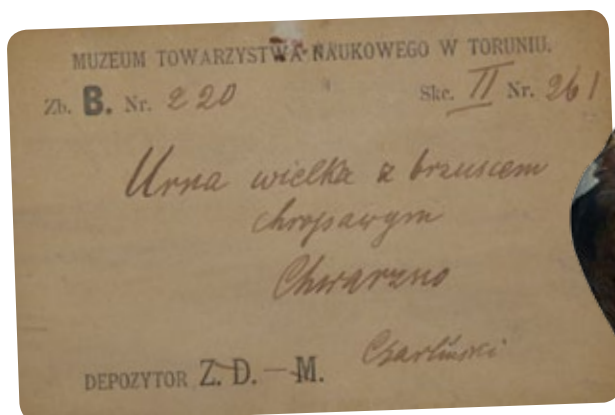 MUZEUM TOWARZYSTWA NAUKOWEGO W TORUNIU.
Zb. B. Nr. 220 Skc. II Nr. 261
Urna wielka z brzuscem
chropawym
Chwarzno
Czarliński
DEPOZYTOR Z. D. — M.